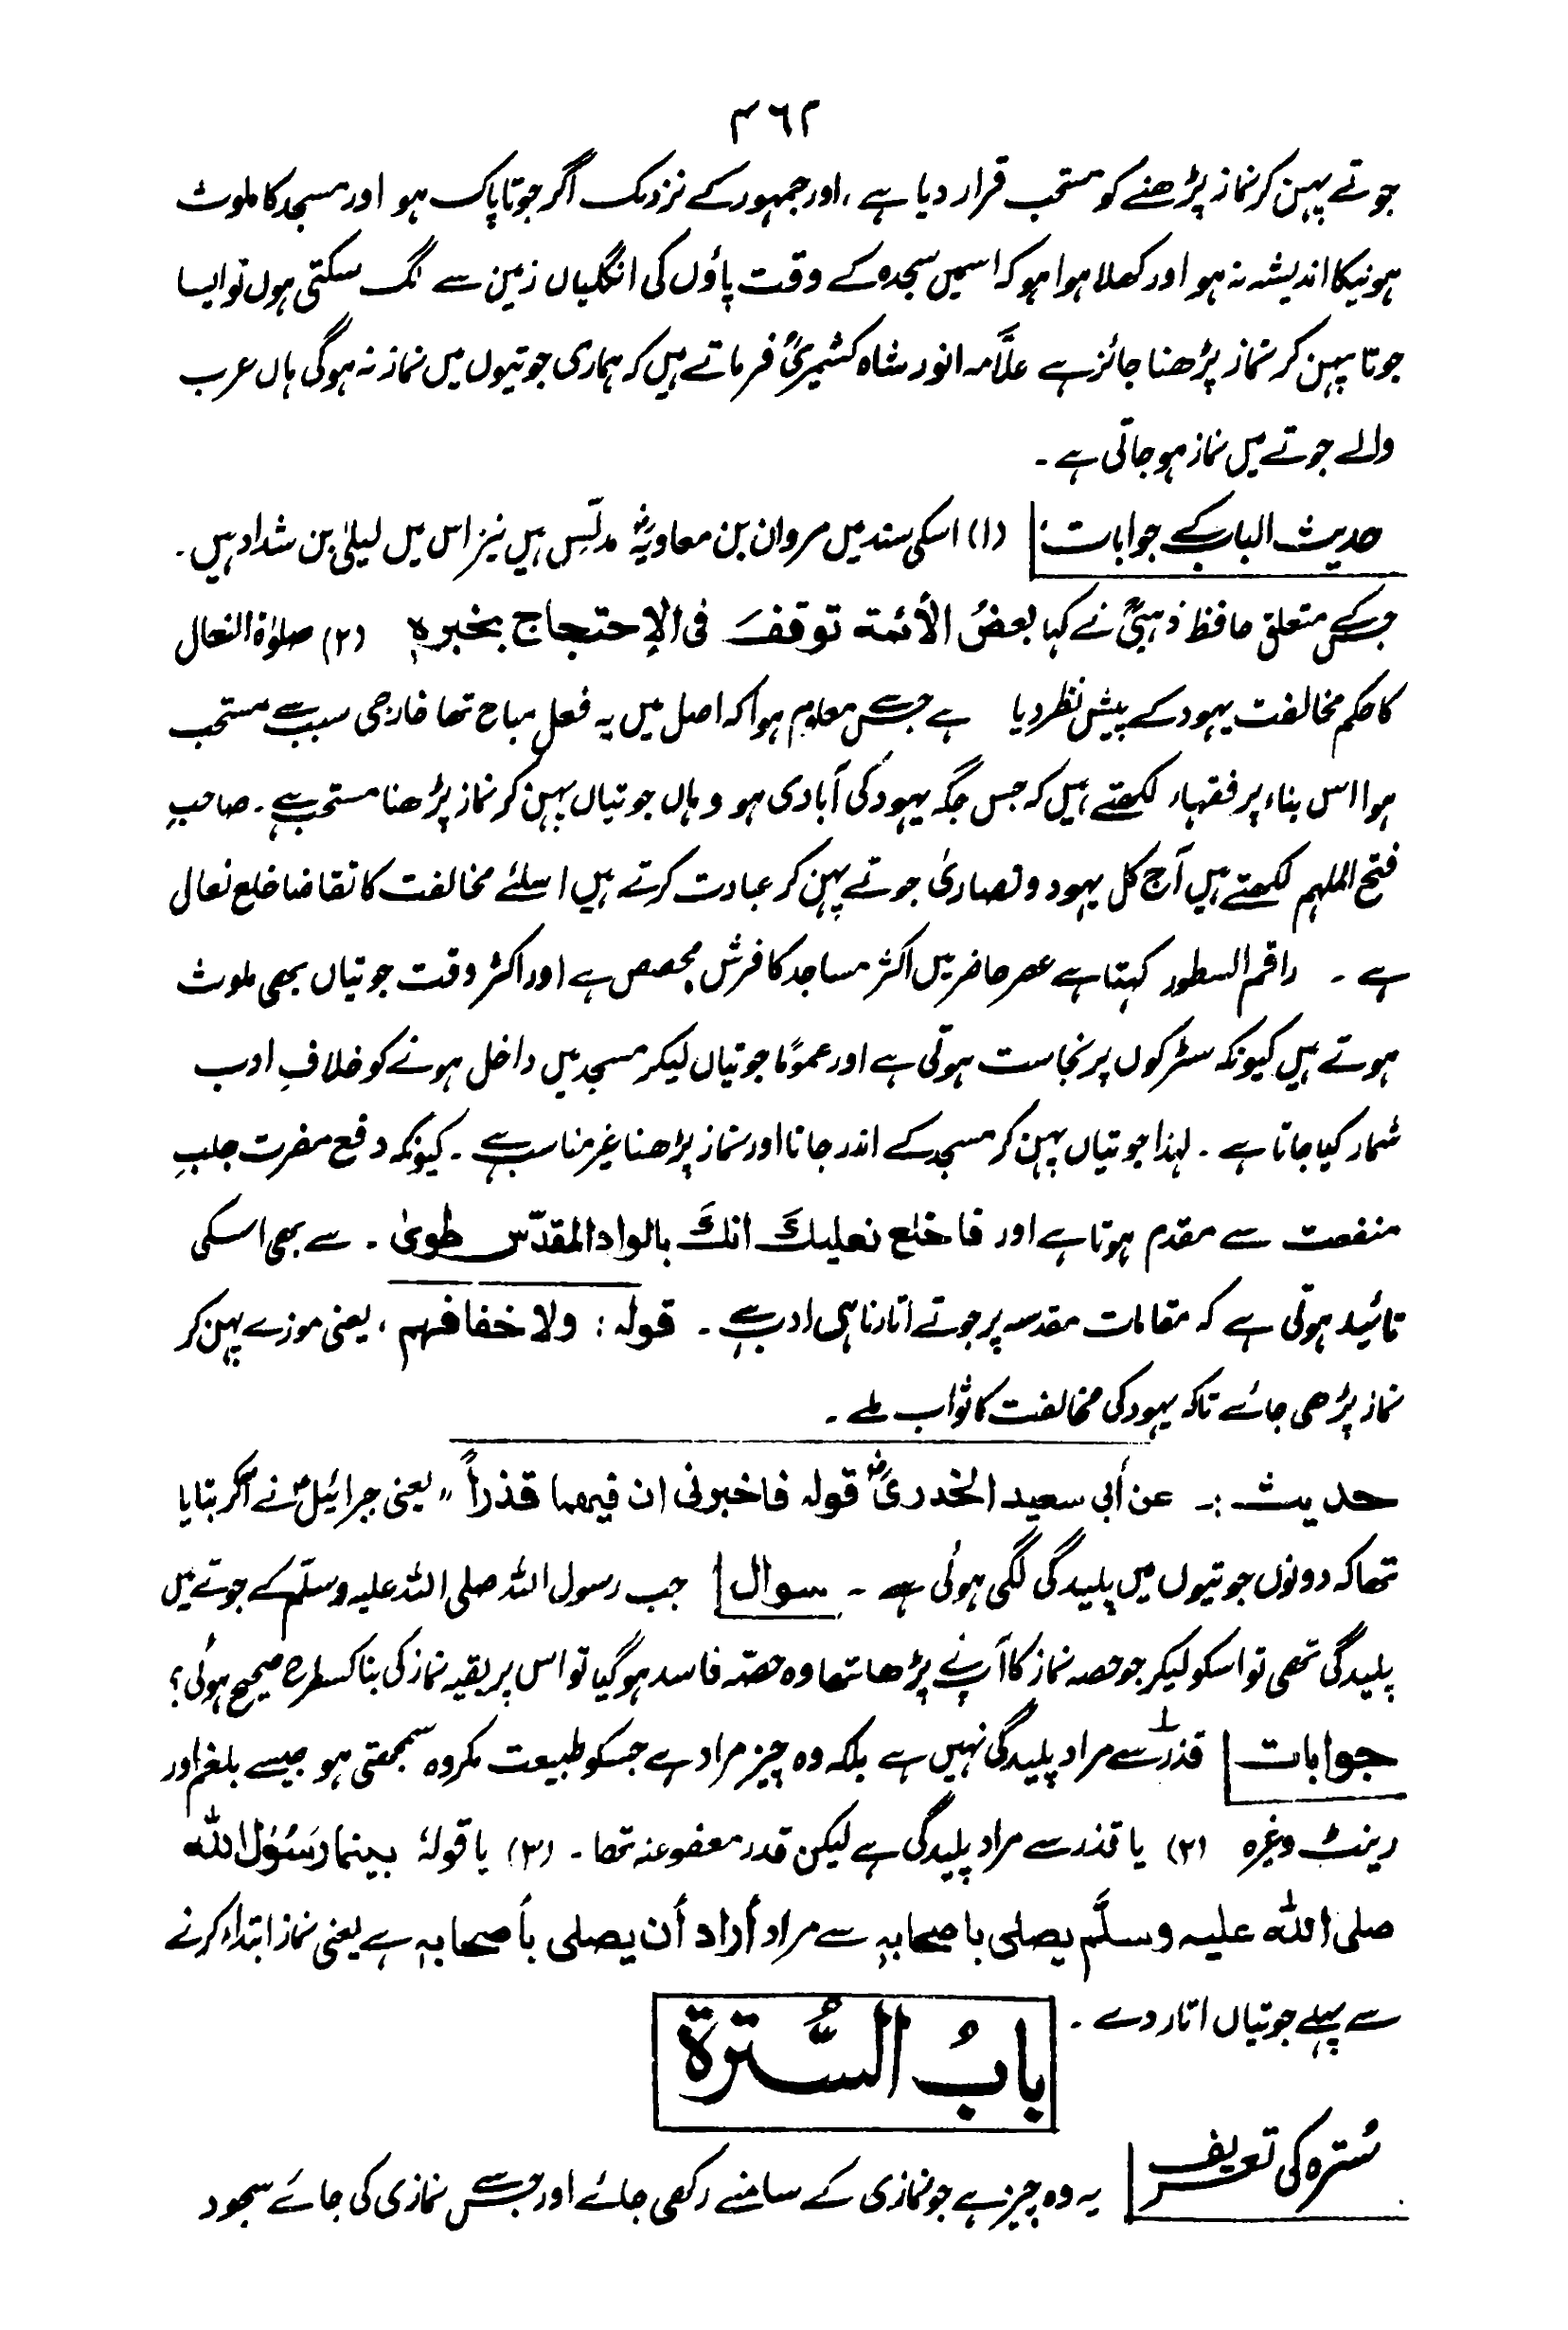 ۴۶۲
جوتے پہن کر نماز پڑھنے کو مستحب قرار دیا ہے ، اور جمہور کے نزدیک اگر جوتا پاک ہو اور مسجد کا ملوث
ہونیکا اندیشہ نہ ہو اور کھلا ہوا ہو کہ اسمیں سجدہ کے وقت پاؤں کی انگلیاں زمین سے لگ سکتی ہوں تو ایسا
جوتا پہن کر نماز پڑھنا جائز ہے علاّمہ انور شاہ کشمیریؒ فرماتے ہیں کہ ہماری جوتیوں میں نماز نہ ہوگی ہاں عرب
والے جوتے میں نماز ہو جاتی ہے ۔
حدیث الباب کے جوابات : (۱) اسکی سند میں مروان بن معاویہؓ مدلّس ہیں نیز اس میں لیلیٰ بن شداد ہیں ۔
جسکے متعلق حافظ ذہبیؒ نے کہا بعضُ الأئمة توقفَ فی الإحتجاج بخبرہٖ (۲) صلوٰۃ النعال
کا حکم مخالفت یہود کے پیش نظر دیا ہے جس سے معلوم ہوا کہ اصل میں یہ فعل مباح تھا خارجی سبب سے مستحب
ہوا اس بناء پر فقہاء لکھتے ہیں کہ جس جگہ یہود کی آبادی ہو وہاں جوتیاں پہن کر نماز پڑھنا مستحب ہے ۔ صاحبِ
فتح الملہم لکھتے ہیں آج کل یہود و نصاریٰ جوتے پہن کر عبادت کرتے ہیں اسلئے مخالفت کا تقاضا خلع نعال
ہے ۔ راقم السطور کہتا ہے عصر حاضر میں اکثر مساجد کا فرش مجصص ہے اور اکثر وقت جوتیاں بھی ملوث
ہوتے ہیں کیونکہ سڑکوں پر نجاست ہوتی ہے اور عموماً جوتیاں لیکر مسجد میں داخل ہونے کو خلافِ ادب
شمار کیا جاتا ہے ۔ لہٰذا جوتیاں پہن کر مسجد کے اندر جانا اور نماز پڑھنا غیر مناسب ہے ۔ کیونکہ دفع مضرت جلبِ
منفعت سے مقدم ہوتا ہے اور فاخلع نعلیكَ انكَ بالواد المقدّس طویٰ ۔ سے بھی اسکی
تائید ہوتی ہے کہ مقامات مقدسہ پر جوتے اتارنا ہی ادب ہے ۔ قولہ : ولا خفافھم ، یعنی موزے پہن کر
نماز پڑھی جائے تاکہ یہود کی مخالفت کا ثواب ملے ۔
حدیث :۔ عن أبی سعید الخدریؓ قولہ فاخبرنی ان فیھما قذراً " یعنی جبرائیلؑ نے آکر بتایا
تھا کہ دونوں جوتیوں میں پلیدگی لگی ہوئی ہے ۔ سوال جب رسول اللہ صلی اللہ علیہ وسلّم کے جوتے میں
پلیدگی تھی تو اسکو لیکر جو حصہ نماز کا آپ نے پڑھا تھا وہ حصّہ فاسد ہو گیا تو اس پر بقیہ نماز کی بنا کسطرح صحیح ہوئی ؟
جوابات قذر سے مراد پلیدگی نہیں ہے بلکہ وہ چیز مراد ہے جسکو طبیعت مکروہ سمجھتی ہو جیسے بلغم اور
رینٹ وغیرہ (۲) یا قذر سے مراد پلیدگی ہے لیکن قدر معفو عنہ تھا ۔ (۳) یا قولہٗ بینما رَسُوْل اللّٰه
صلی اللّٰه علیہ وسلَّم یصلی باصحابہٖ سے مراد أراد أن یصلی بأصحابہٖ ہے یعنی نماز ابتداء کرنے
سے پہلے جوتیاں اتار دے ۔
بابُ السُّترة
سُترہ کی تعریف یہ وہ چیز ہے جو نمازی کے سامنے رکھی جائے اور جس سے نمازی کی جائے سجود